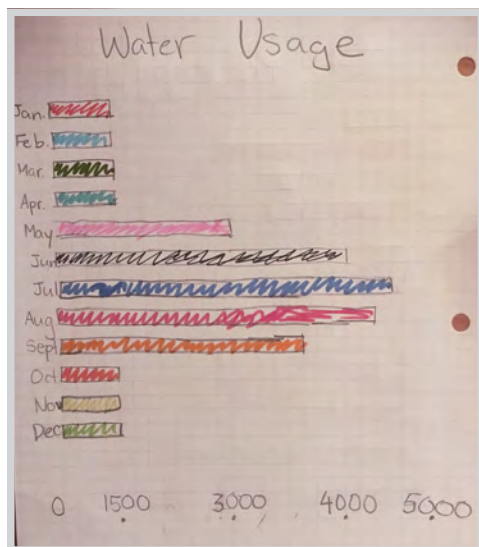 Water Usage
Jan.
Feb.
Mar.
Apr.
May
Jun
Jul
Aug
Sept
Oct
Nov
Dec
0 1500 3000 4000 5000